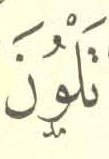 تَلْوُنَ